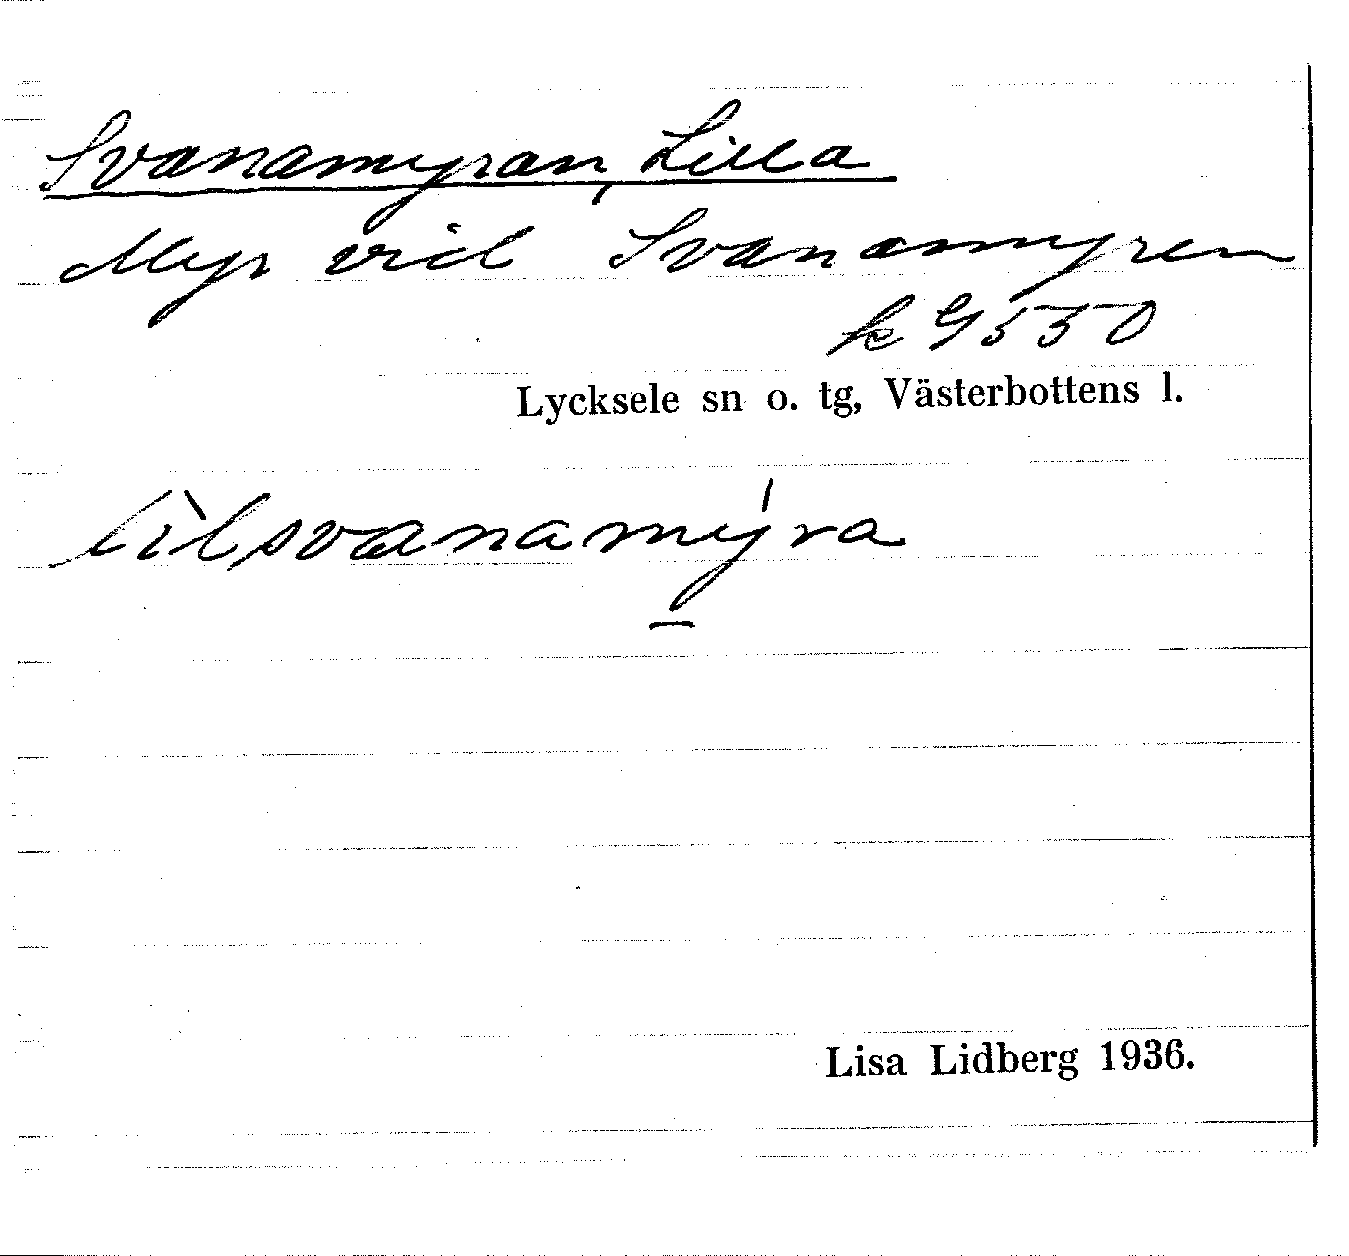 Svanamyran, Lilla
Myr vid Svanamyren
k 9550
Lycksele sn o. tg, Västerbottens l.
lìlsvanamýra
Lisa Lidberg 1936.